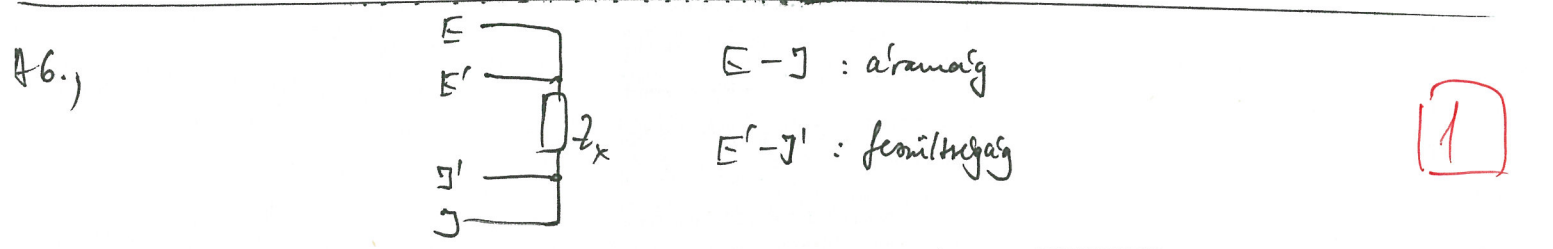 A6.,
E
E'
Zx
J'
J
E-J : áramág
E'-J' : feszültségág
1